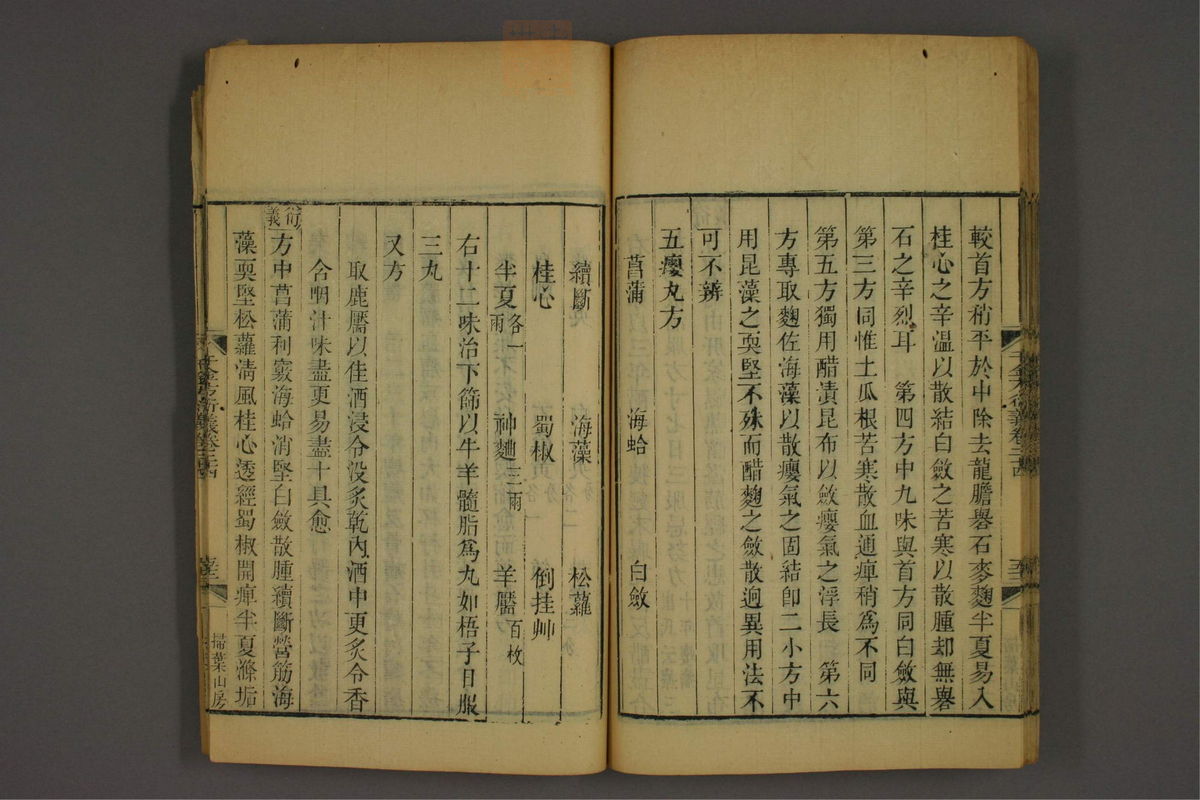 較首方稍平於中除去龍膽礜石麥麴半夏易入
桂心之辛溫以散結白斂之苦寒以散腫却無礜
石之辛烈耳　第四方中九味與首方同白斂與
第三方同惟土瓜根苦寒散血通痺稍爲不同
第五方獨用醋漬昆布以斂癭氣之浮長　第六
方專取麴佐海藻以散癭氣之固結卽二小方中
用昆藻之耎堅不殊而醋麴之斂散迥異用法不
可不辨
五癭丸方
菖蒲　海蛤　白斂
續斷　海藻　松蘿
桂心　蜀椒　倒挂艸
半夏各一兩　神麯三兩　羊靨百枚
右十二味治下篩以牛羊髓脂爲丸如梧子日服
三丸
又方
取鹿靨以佳酒浸令没炙乾內酒中更炙令香
含嚥汁味盡更易盡十具愈
衍義方中菖蒲利竅海蛤消堅白斂散腫續斷營筋海
藻耎堅松蘿淸風桂心透經蜀椒開痺半夏滌垢
千金方衍義卷二十四
掃葉山房